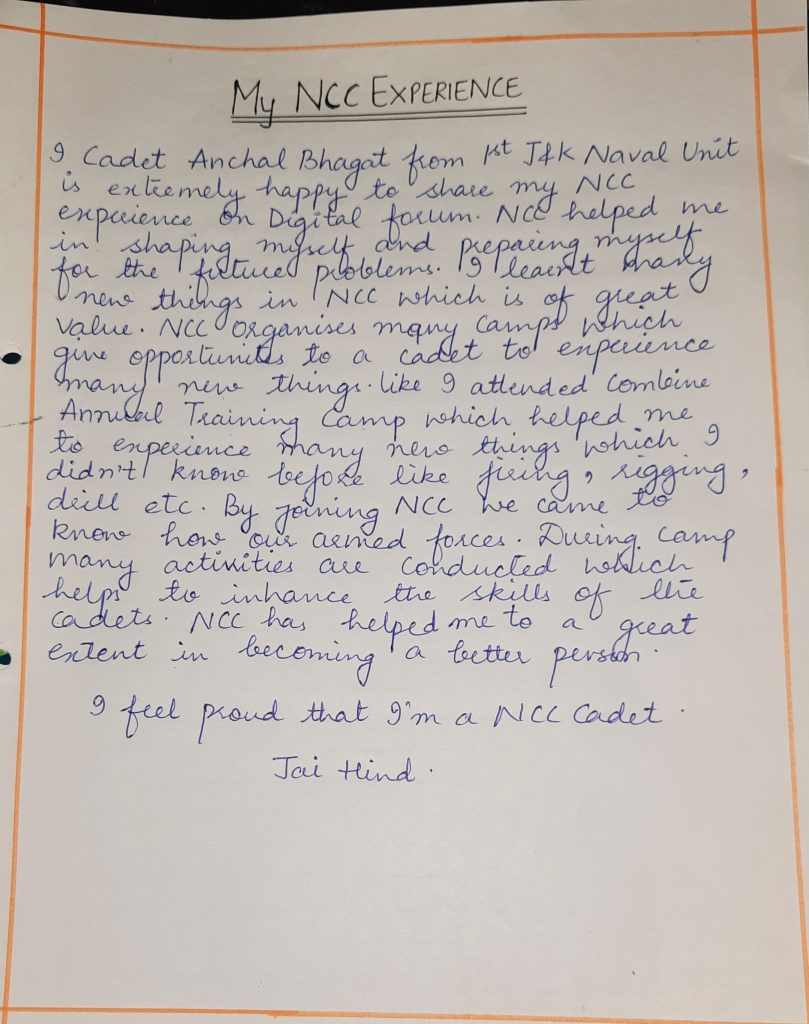 My NCC EXPERIENCE
I Cadet Anchal Bhagat from 1st J&K Naval Unit
is extremely happy to share my NCC
experience on Digital forum. NCC helped me
in shaping myself and preparing myself
for the future problems. I learnt many
new things in NCC which is of great
value. NCC organises many camps which
give opportunites to a cadet to experience
many new things. like I attended Combine
Annual Training Camp which helped me
to experience many new things which I
didn't know before like firing, rigging,
drill etc. By joining NCC we came to
know how our armed forces. During camp
many activities are conducted which
helps to inhance the skills of the
cadets. NCC has helped me to a great
extent in becoming a better person.
I feel proud that I'm a NCC Cadet.
Jai Hind.